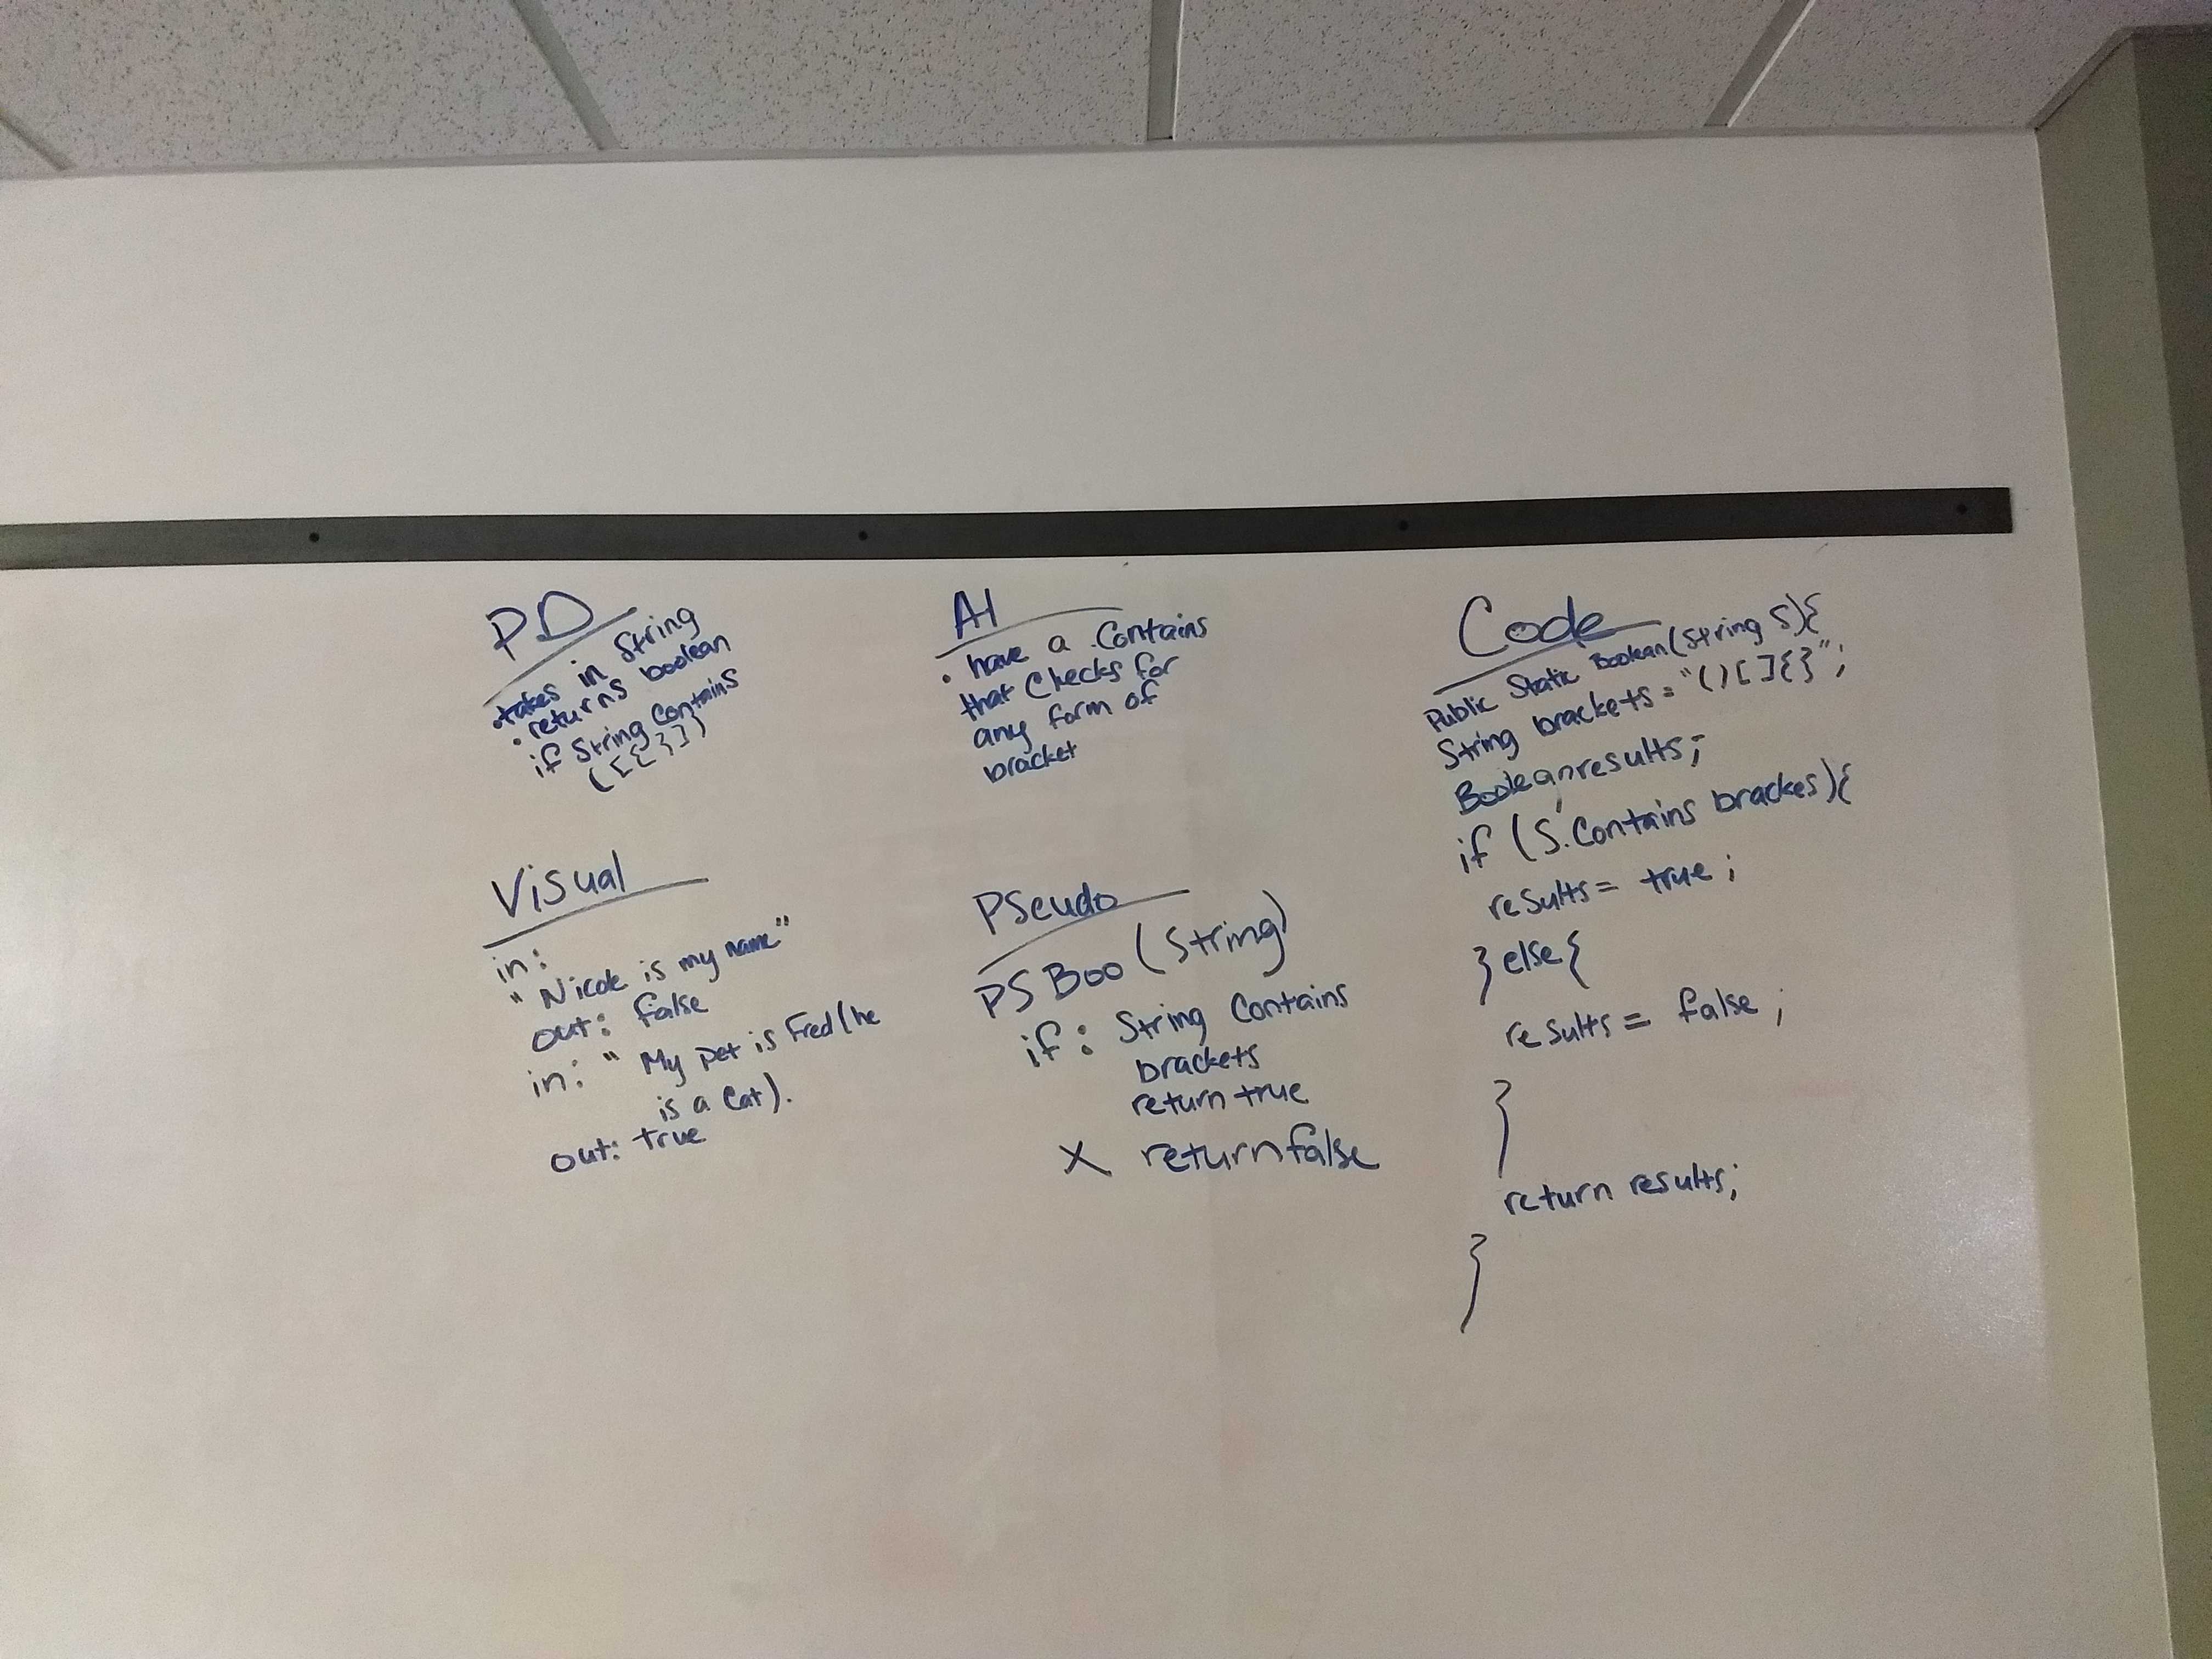 PD
• takes in String
• returns boolean
if String Contains
([{}])
Visual
in:
"Nicole is my name"
out: false
in: "My pet is Fred (he
is a Cat).
out: true
Al
• have a .Contains
that Checks for
any form of
bracket
PSeudo
PS Boo (String)
if: String Contains
brackets
return true
X return false
Code
Public Static Boolean(String S){
String brackets = "()[]{}";
Boolean results;
if (S.Contains brackes){
results = true;
} else {
results = false;
}
return results;
}